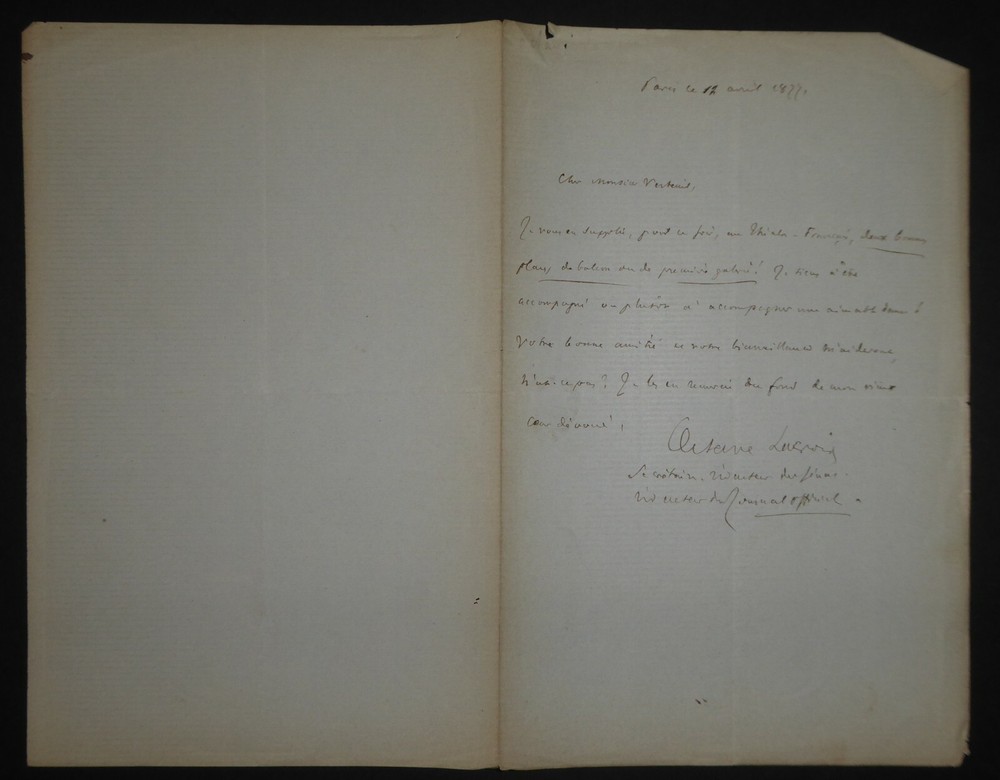 Paris ce 12 avril 1877.
Cher Monsieur Verteuil,
Je vous en supplie, pour ce soir, au Théâtre-Français, deux bonnes
places de balcon ou de première galerie! Je tiens à être
accompagné ou plutôt à accompagner une aimable dame &
votre bonne amitié et votre bienveillance m'aideront,
n'est-ce pas? Je les en remercie du fond de mon vieux
cœur dévoué!
Octave Lacroix
Secrétaire-rédacteur du Sénat.
rédacteur du Journal officiel.